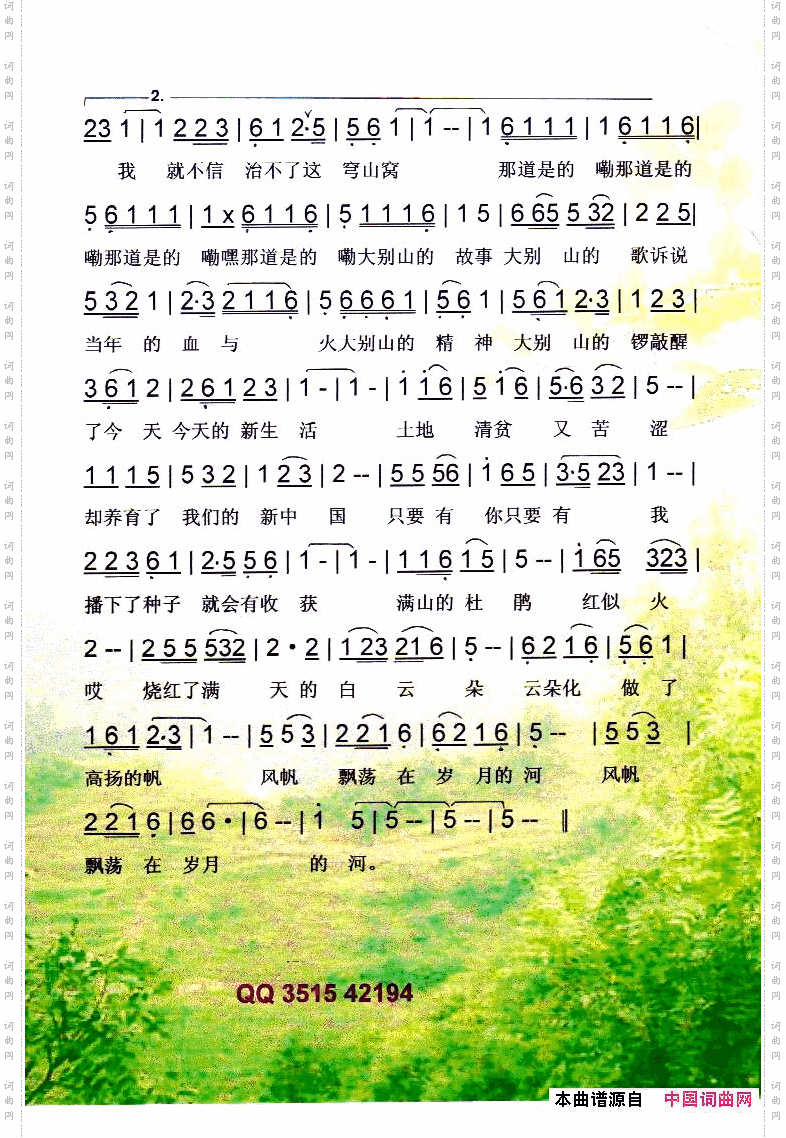 2.
23 1 | 1 2 2 3 | 6 1 2·5 | 5 6 1 | 1 -- | 1 6 1 1 1 | 1 6 1 1 6 |
我 就不信 治不了这 穹山窝 那道是的 嘞那道是的
5 6 1 1 1 | 1 x 6 1 1 6 | 5 1 1 1 6 | 1 5 | 6 65 5 32 | 2 2 5 |
嘞那道是的 嘞嘿那道是的 嘞大别山的 故事 大别 山的 歌诉说
5 3 2 1 | 2·3 2 1 1 6 | 5 6 6 6 1 | 5 6 1 | 5 6 1 2·3 | 1 2 3 |
当年 的 血 与 火大别山的 精 神 大别 山的 锣敲醒
3 6 1 2 | 2 6 1 2 3 | 1 - | 1 - | 1 1 6 | 5 1 6 | 5·6 3 2 | 5 -- |
了今 天 今天的 新生 活 土地 清贫 又 苦 涩
1 1 1 5 | 5 3 2 | 1 2 3 | 2 -- | 5 5 56 | 1 6 5 | 3·5 23 | 1 -- |
却养育了 我们的 新中 国 只要 有 你只要 有 我
2 2 3 6 1 | 2·5 5 6 | 1 - | 1 - | 1 1 6 1 5 | 5 -- | 1 65 323 |
播下了种子 就会有收 获 满山的 杜 鹃 红似 火
2 -- | 2 5 5 532 | 2 · 2 | 1 23 21 6 | 5 -- | 6 2 1 6 | 5 6 1 |
哎 烧红了满 天 的 白 云 朵 云朵化 做 了
1 6 1 2·3 | 1 -- | 5 5 3 | 2 2 1 6 | 6 2 1 6 | 5 -- | 5 5 3 |
高扬的帆 风帆 飘荡 在 岁 月的 河 风帆
2 2 1 6 | 6 6 · | 6 -- | 1 5 | 5 -- | 5 -- | 5 -- ‖
飘荡 在 岁月 的 河。
QQ 3515 42194
本曲谱源自 中国词曲网